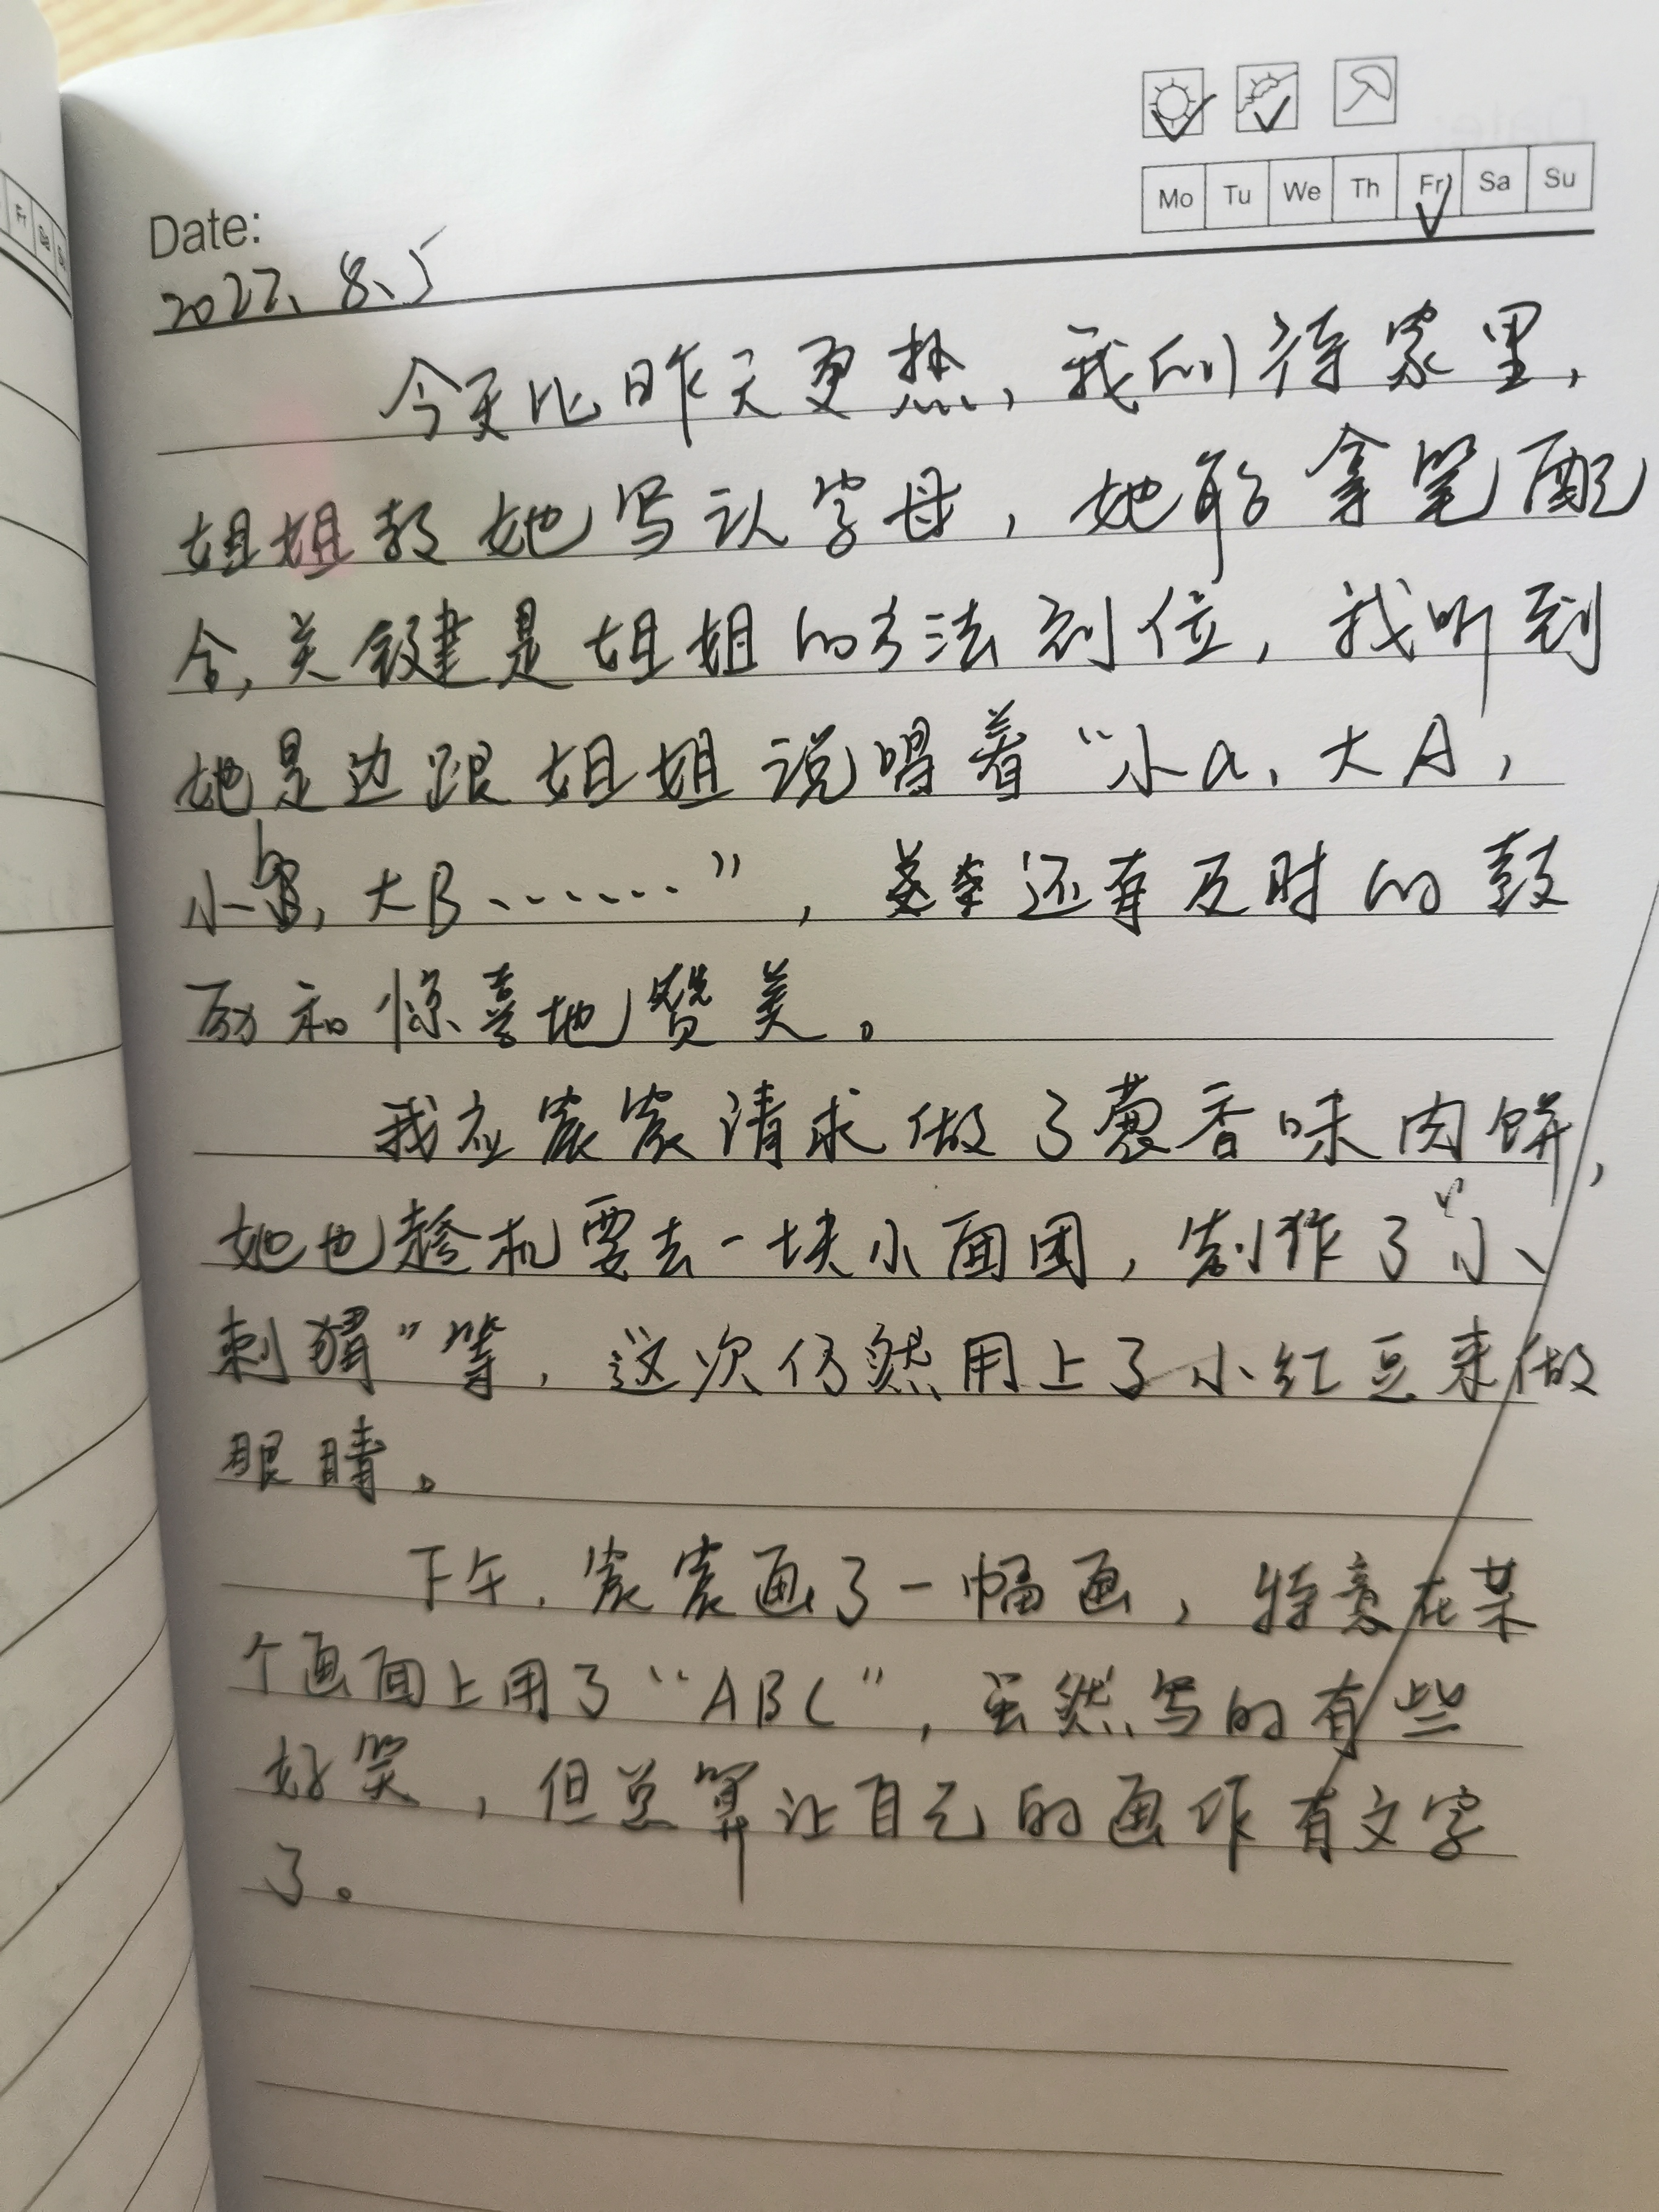 Mo Tu We Th Fr Sa Su
Date:
2022、8、5
今天比昨天更热，我们待家里，
姐姐教她写认字母，她能拿笔配
合，关键是姐姐的方法到位，我听到
她是边跟姐姐说唱着“小a，大A，
小b，大B……”，还有及时的鼓
励和惊喜地赞美。
我应宸宸请求做了葱香味肉饼，
她也趁机要去一块小面团，制作了“小
刺猬”等，这次仍然用上了小红豆来做
眼睛。
下午，宸宸画了一幅画，特意在某
个画面上用了“ABC”，虽然写的有些
好笑，但总算让自己的画作有文字
了。